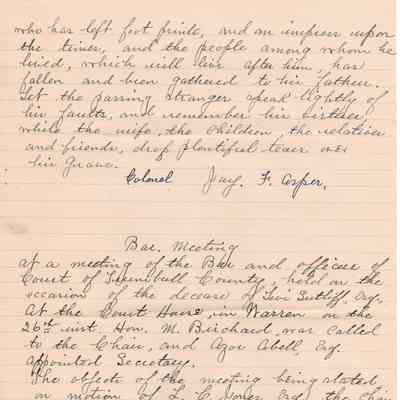 who has left foot prints, and an impress upon
the times, and the people among whom he
lived, which will live after him, has
fallen and been gathered to his fathers.
Let the passing stranger speak lightly of
his faults, and remember his virtues,
while the wife, the children, the relatives
and friends, drop plentiful tears over
his grave.
Colonel Jay. F. Asper.
Bar. Meeting
at a meeting of the Bar and officers of
Court of Trumbull County, held on the
occasion of the decease of Levi Sutliff, Esq.
At the Court House, in Warren on the
26th inst. Hon. M. Birchard, was called
to the Chair, and Azor Abell, Esq.
appointed Secretary.
The objects of the meeting being stated
on motion of L. C. Jones Esq. the Chair